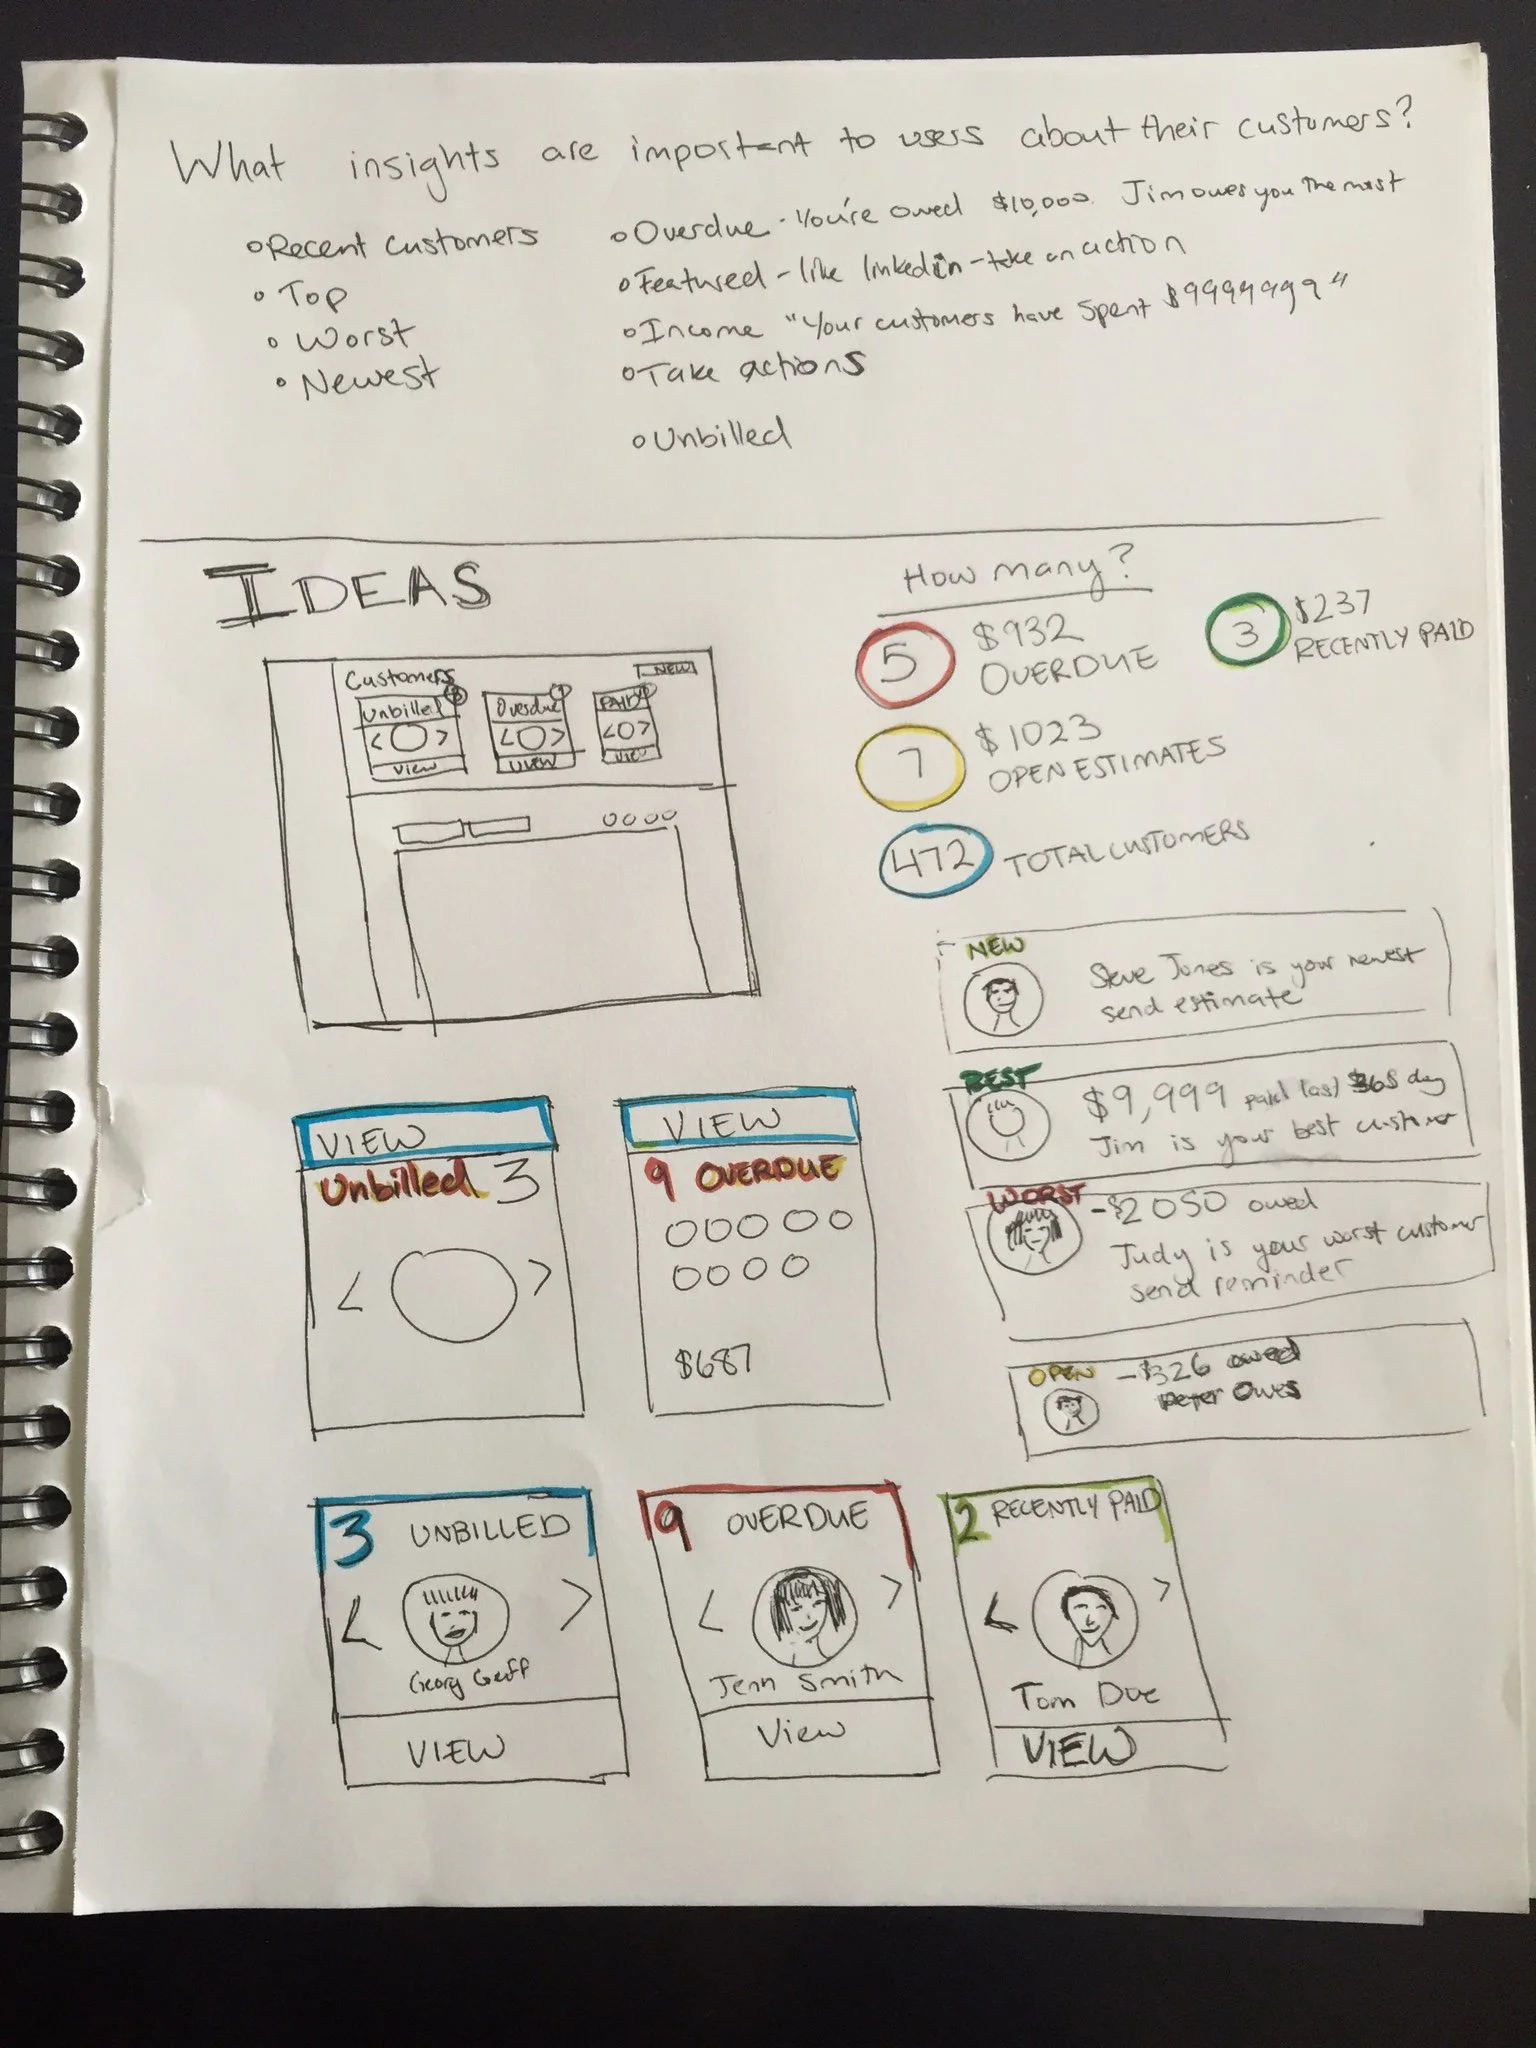 What insights are important to users about their customers?
Recent customers
Top
Worst
Newest
Overdue - You're owed $10,000. Jim owes you the most
Featured - like linkedin - take an action
Income "Your customers have spent $9999999"
Take actions
Unbilled
IDEAS
Customers
NEW
Unbilled
VIEW
Overdue
VIEW
PAID
VIEW
How many?
5
$932
OVERDUE
3
$237
RECENTLY PAID
7
$1023
OPEN ESTIMATES
472
TOTAL CUSTOMERS
NEW
Steve Jones is your newest
send estimate
BEST
$9,999 paid last 365 day
Jim is your best customer
WORST
-$2050 owed
Judy is your worst customer
send reminder
OPEN
-$326 owed
Peter Owes
VIEW
Unbilled 3
< >
VIEW
9 OVERDUE
$687
3 UNBILLED
< >
Georg
VIEW
9 OVERDUE
< >
Jenn Smith
View
2 RECENTLY PAID
< >
Tom Doe
VIEW